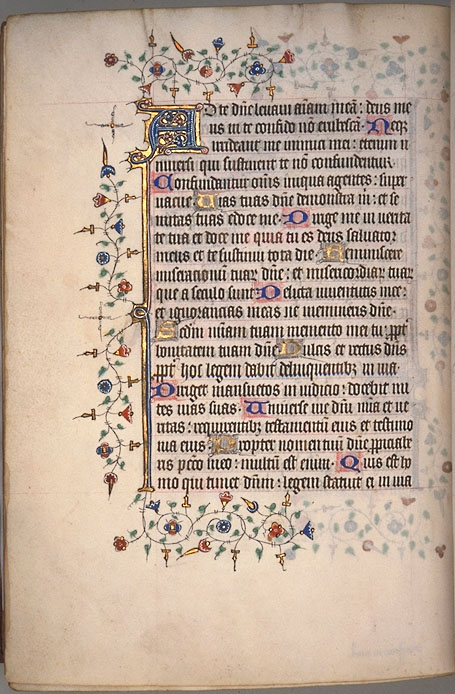 Ad te dn̄e levavi aīam meā: deus me
us in te confido nō erubescā. Neqꝫ
irrideant me inimici mei: etenim u
niversi qui sustinent te nō confundentur.
Confundantur om̄s iniqua agentes: super
vacue. Vias tuas dn̄e demonstra m̄: et se
mitas tuas edoce me. Dirige me in verita
te tua et doce me quia tu es deus salvator
meus et te sustinui tota die. Reminiscere
miserationū tuaꝝ dn̄e: et misericordiaꝝ tuaꝝ
que a seculo sunt. Delicta iuventutis mee:
et ignorancias meas ne memineris dn̄e.
Scd̄m mīam tuam memento mei tu: ꝓpt̄
bonitatem tuam dn̄e. Dulcis et rectus dn̄s
ꝓpt̄ hoc legem dabit delinquentibꝫ in via.
Diriget mansuetos in iudicio: docebit mi
tes vias suas. Universe vie dn̄i mīa et ve
ritas: requirentibꝫ testamentū eius et testimo
nia eius. Propter nomen tuū dn̄e ꝓpiciabe
ris pctō meo: multū est enim. Quis est ho
mo qui timet dn̄m: legem statuit ei in via